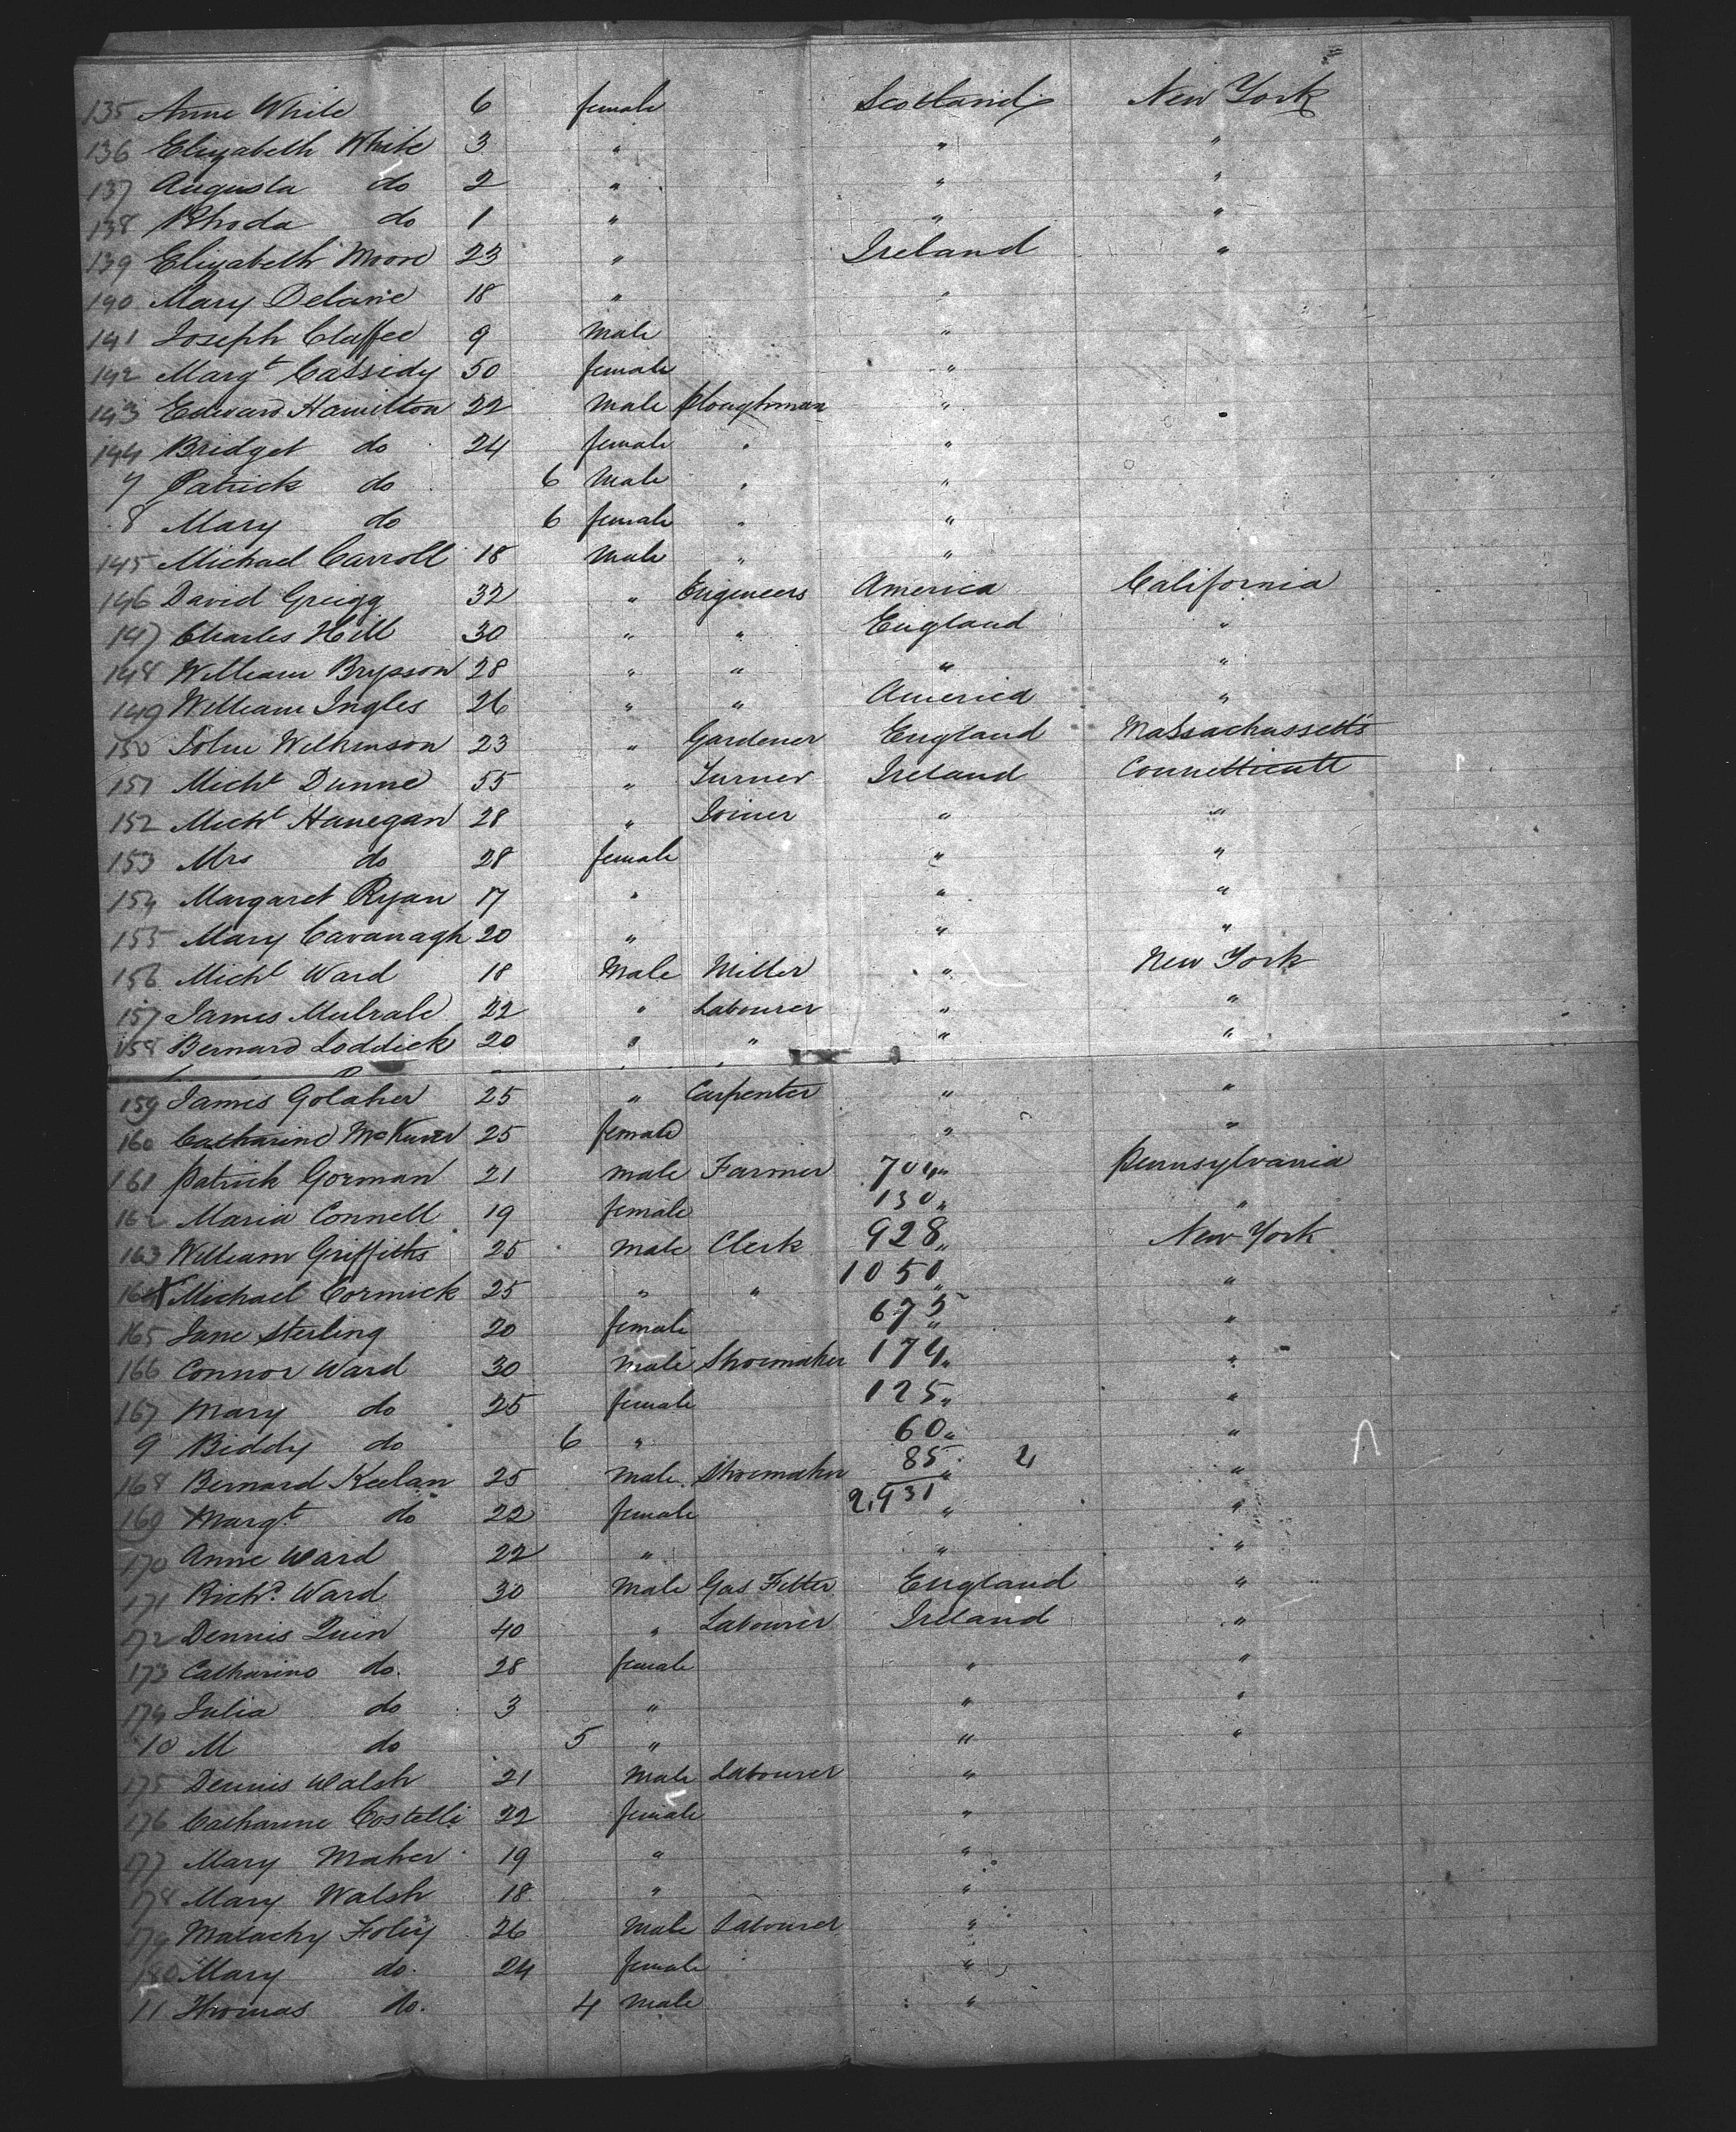 135 Anne White 6 female Scotland New York
136 Elizabeth White 3 " " "
137 Augusta do 2 " " "
138 Rhoda do 1 " " "
139 Elizabeth Moore 23 " Ireland "
140 Mary Delane 18 " "
141 Joseph Claffee 9 Male "
142 Margt Cassidy 50 female "
143 Edward Hamilton 22 Male Ploughman "
144 Bridget do 24 female " "
7 Patrick do 6 Male " "
8 Mary do 6 female " "
145 Michael Carroll 18 Male " "
146 David Greigg 32 " Engineers America California
147 Charles Hill 30 " " England "
148 William Brypson 28 " " " "
149 William Ingles 26 " " America "
150 John Wilkinson 23 " Gardener England Massachussetts
151 Michl Dunne 55 " Turner Ireland Connetticutt
152 Michl Hanegan 28 " Joiner " "
153 Mrs do 28 female " "
154 Margaret Ryan 17 " " "
155 Mary Cavanagh 20 " " "
156 Michl Ward 18 Male Miller " New York
157 James Mulrale 22 " Labourer " "
158 Bernard Loddick 20 " " " "
159 James Golaher 25 " Carpenter " "
160 Catharine 25 female " "
161 Patrick Gorman 21 male Farmer 704 " Pennsylvania
162 Maria Connell 19 female 130 " "
163 William Griffiths 25 Male Clerk 928 " New York
164 X Michael Cormick 25 " " 1050 " "
165 Jane Sterling 20 female 675 " "
166 Connor Ward 30 Male Shoemaker 174 " "
167 Mary do 25 female 125 " "
9 Biddy do 6 " 60 " "
168 Bernard Keelan 25 Male Shoemaker 85 " 2 "
169 Margt do 22 female 2,931 " "
170 Anne Ward 22 " " "
171 Richd Ward 30 Male Gas Fitter England "
172 Dennis Quin 40 " Labourer Ireland "
173 Catharine do 28 female " "
174 Julia do 3 " " "
10 M do 5 " " "
175 Dennis Walsh 21 Male Labourer "
176 Catharine Costelle 22 female "
177 Mary Maher 19 " "
178 Mary Walsh 18 " "
179 Malachy Foley 26 Male Labourer "
180 Mary do 24 female "
11 Thomas do. 4 Male "